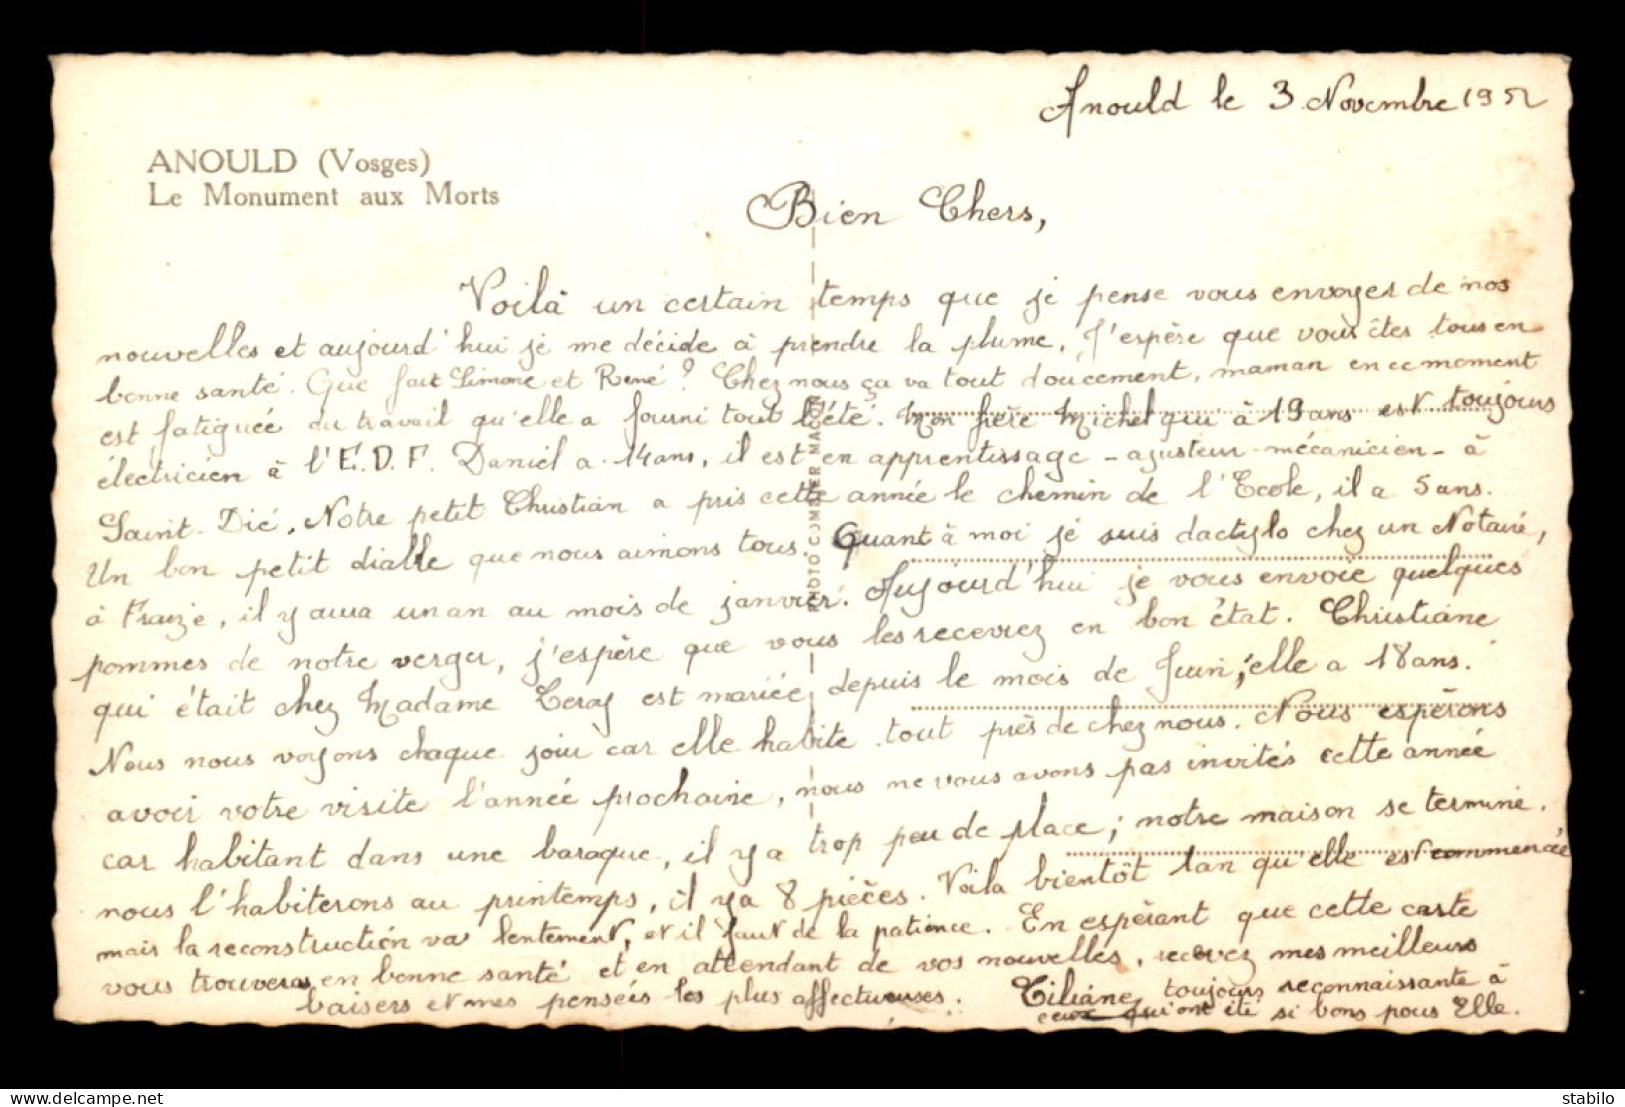 Anould le 3 Novembre 1952
ANOULD (Vosges)
Le Monument aux Morts
Bien Chers,
Voilà un certain temps que je pense vous envoyer de nos
nouvelles et aujourd'hui je me décide à prendre la plume. J'espère que vous êtes tous en
bonne santé. Que fait Simone et René ? Chez nous ça va tout doucement, maman en ce moment
est fatiguée du travail qu'elle a fourni tout l'été. Mon frère Michel qui à 19 ans est toujours
électricien à l'E.D.F. Daniel a 14 ans, il est en apprentissage - ajusteur-mécanicien - à
Saint-Dié. Notre petit Christian a pris cette année le chemin de l'Ecole, il a 5 ans.
Un bon petit diable que nous aimons tous. Quant à moi je suis dactylo chez un Notaire,
à Fraize, il y aura un an au mois de janvier. Aujourd'hui je vous envoie quelques
pommes de notre verger, j'espère que vous les recevrez en bon état. Christiane
qui était chez Madame est mariée depuis le mois de Juin, elle a 18 ans.
Nous nous voyons chaque jour car elle habite tout près de chez nous. Nous espérons
avoir votre visite l'année prochaine, nous ne vous avons pas invités cette année
car habitant dans une baraque, il y a trop peu de place ; notre maison se termine.
nous l'habiterons au printemps, il y a 8 pièces. Voila bientôt 1an qu'elle est commencée
mais la reconstruction va lentement, et il faut de la patience. En espérant que cette carte
vous trouveras en bonne santé et en attendant de vos nouvelles, recevez mes meilleurs
baisers et mes pensées les plus affectueuses. Liliane, toujours reconnaissante à
ceux qui ont été si bons pour Elle.
PHOTO COMBIER MACON
stabilo
www.delcampe.net